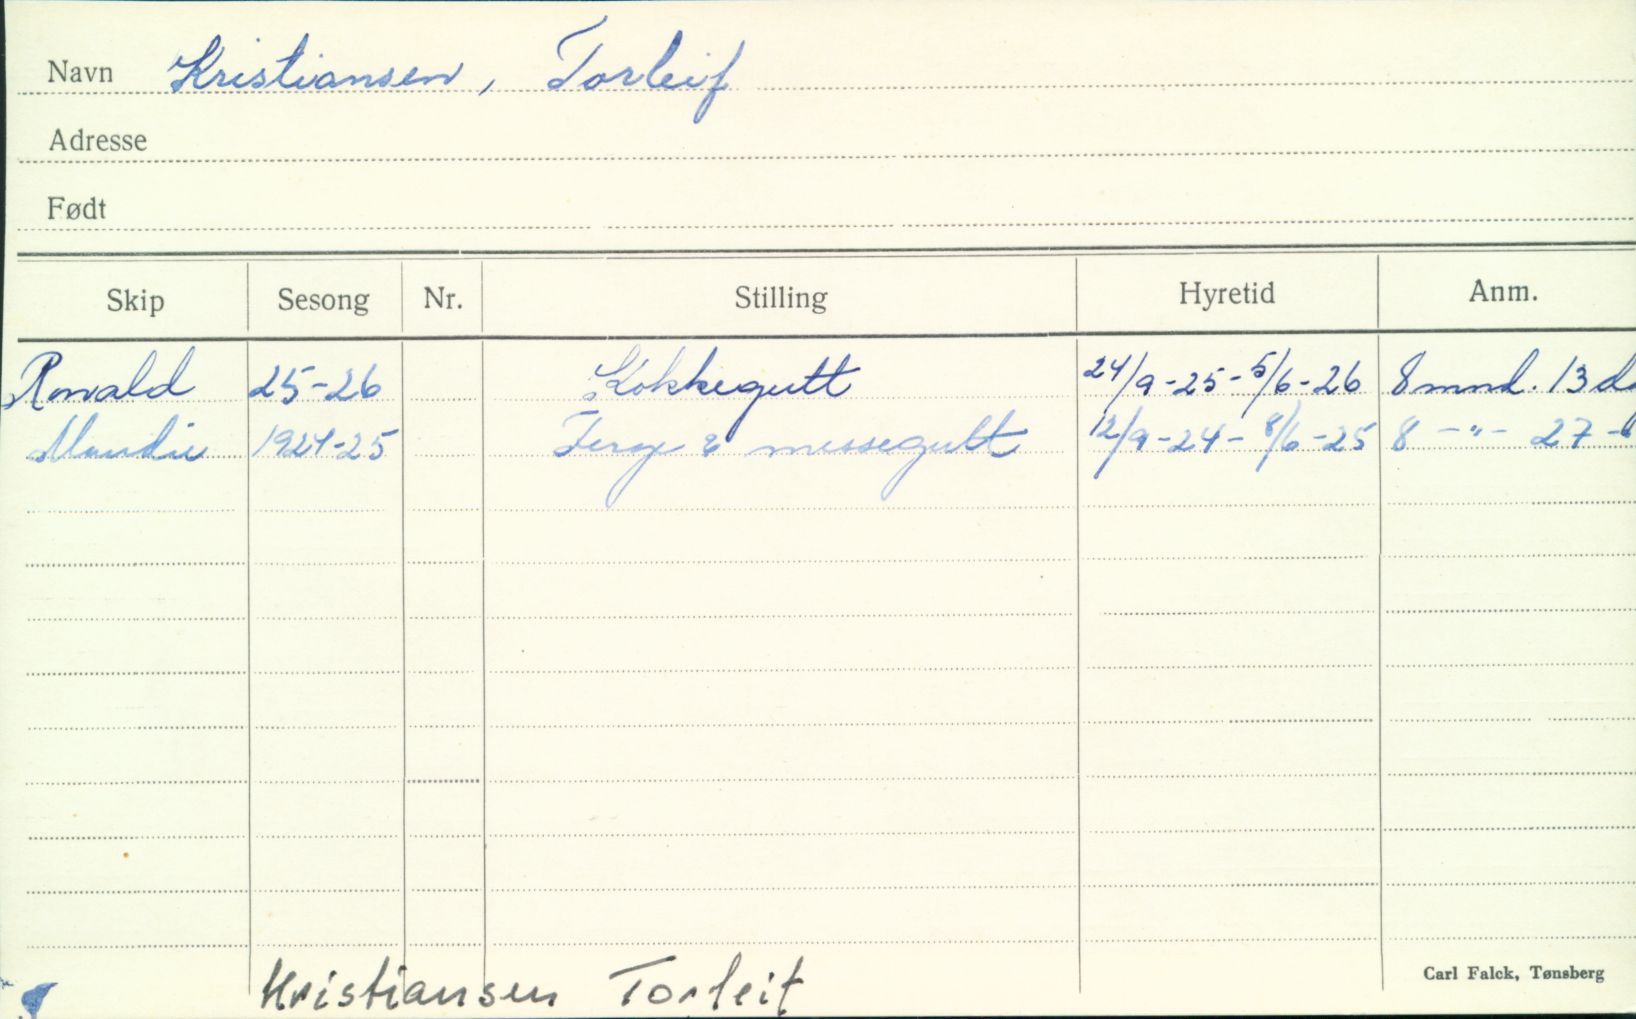 Navn Kristiansen, Torleif
Adresse
Født
Skip Sesong Nr. Stilling Hyretid Anm.
Ronald 25-26 Kokkegutt 24/9-25-5/6-26 8 mnd. 13 da
Maudie 1924-25 & messegutt 12/9-24-8/6-25 8 -"- 27 -
Kristiansen Torleif
Carl Falck, Tønsberg